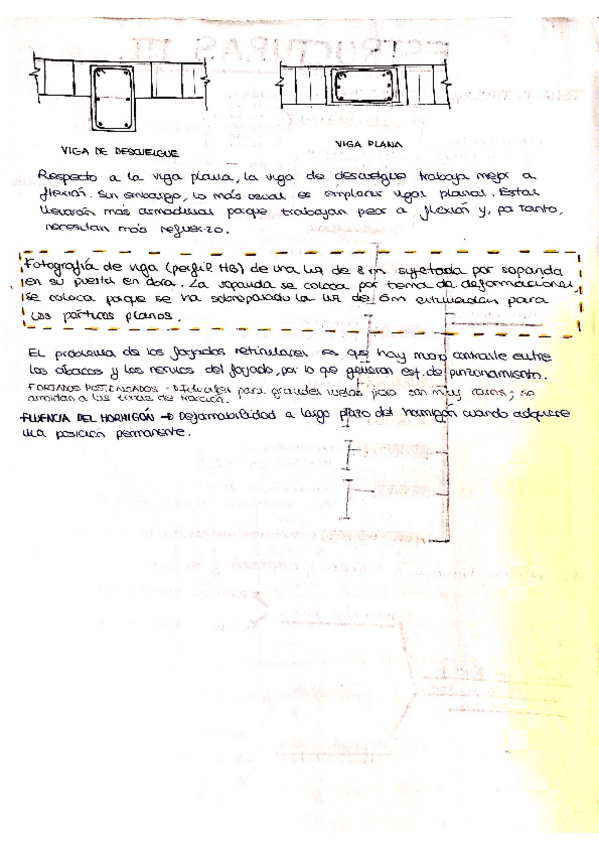 VIGA DE DESCUELGUE
VIGA PLANA
Respecto a la viga plana, la viga de descuelgue trabaja mejor a
flexión. Sin embargo, lo más usual es emplear vigas planas. Estas
llevarán más armaduras porque trabajan peor a flexión y, por tanto,
necesitan más refuerzo.
Fotografía de viga (perfil HB) de una luz de 8m sujetada por sopanda
en su puesta en obra. La sopanda se coloca por tema de deformaciones,
se coloca porque se ha sobrepasado la luz de 6m para
los pórticos planos.
El problema de los forjados reticulares es que hay mucho entre
los ábacos y los nervios del forjado, por lo que generan esf. de punzonamiento.
FORJADOS POSTENSADOS - para grandes luces pero son muy caros; se
FLUENCIA DEL HORMIGÓN → Deformabilidad a largo plazo del hormigón cuando adquiere
una posición permanente.